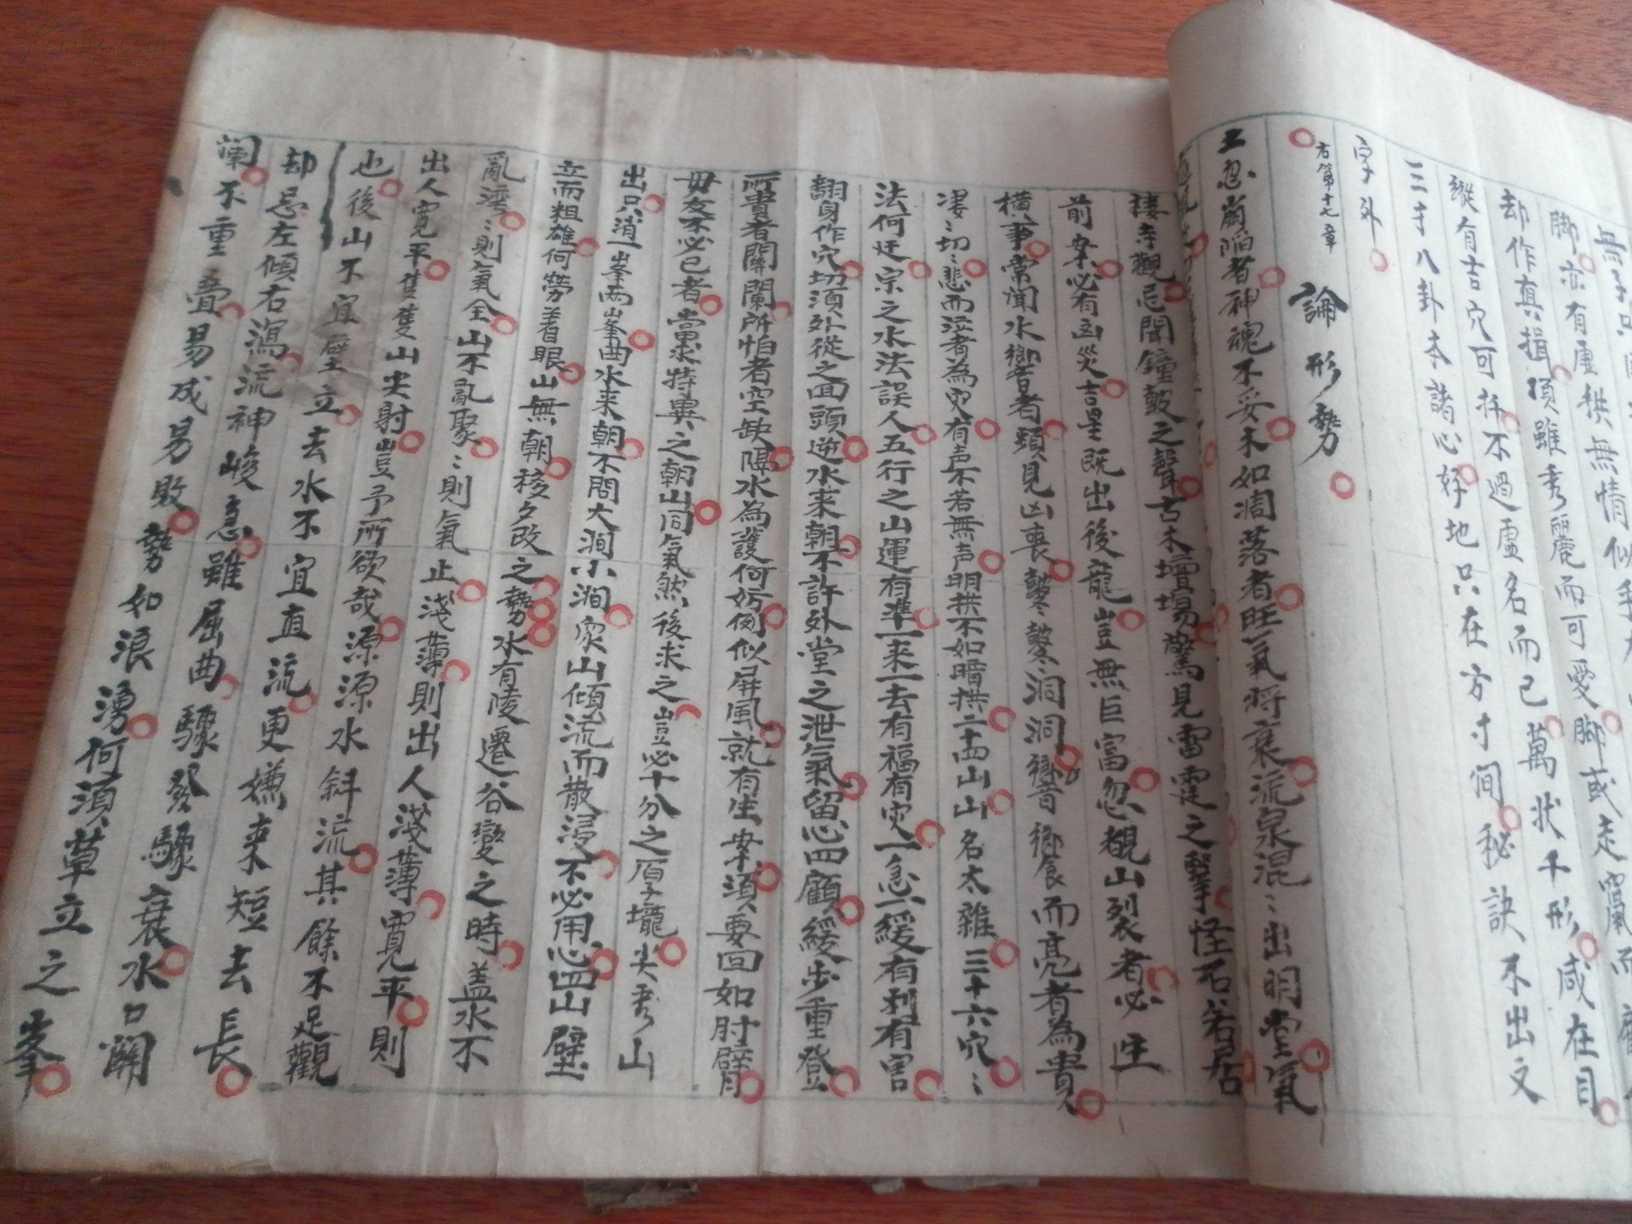 脚亦有虛拱無情似手
脚亦有虛拱雖秀麗而可愛脚或走竄而
却作真揖頂雖秀麗而可愛
却作真揖不過虛名而已萬狀千形咸在目
縱有吉穴可扦不過虛名而已
三才八卦本諸心好地只在方寸間秘訣不出文
字外
右第十七章
論形勢
土忽崩陷者神魂不妥木如凋落者旺氣將衰流泉混ミ出明堂氣
棲寺觀忌聞鐘鼓之聲古木壇場驚見雷霆之擊怪石若居
前案必有凶災吉星既出後龍豈無巨富忽覩山裂者必生
橫事常聞水響者頻見凶喪鼕鼕洞洞響而亮者為貴
凄ミ切ミ悲而泣者為灾有声不若無声明拱不如暗拱二十四山山名太雜三十六穴ミ
法何迂宗之水法誤人五行之山運有準一来一去有福有灾一急一緩有利有害
翻身作穴切須外從之回頭逆水来朝不許外堂之泄氣留心四顧緩步重登
所貴者關闌所怕者空缺隔水為護何妨倒似屏風就有生案須要回如肘臂
毋友不必己者當求特異之朝山同氣然後求之豈必十分之厚壠尖秀山
出只消一峯兩峯曲水来朝不問大澗小澗衆山傾流而散漫不必用心四山壁
立而粗雄何勞著眼山無朝移夕改之勢水有陵遷谷變之時蓋水不
亂灣ミ則氣全山不亂聚ミ則氣止淺薄則出人淺薄寬平則
出人寬平隻隻山尖射豈予所欲哉源源水斜流其餘不足觀
也後山不宜壁立去水不宜直流更嫌来短去長
却忌左傾右瀉流神峻急雖屈曲驟發驟衰水口關
闌不重疊易成易敗勢如浪湧何須草立之峯